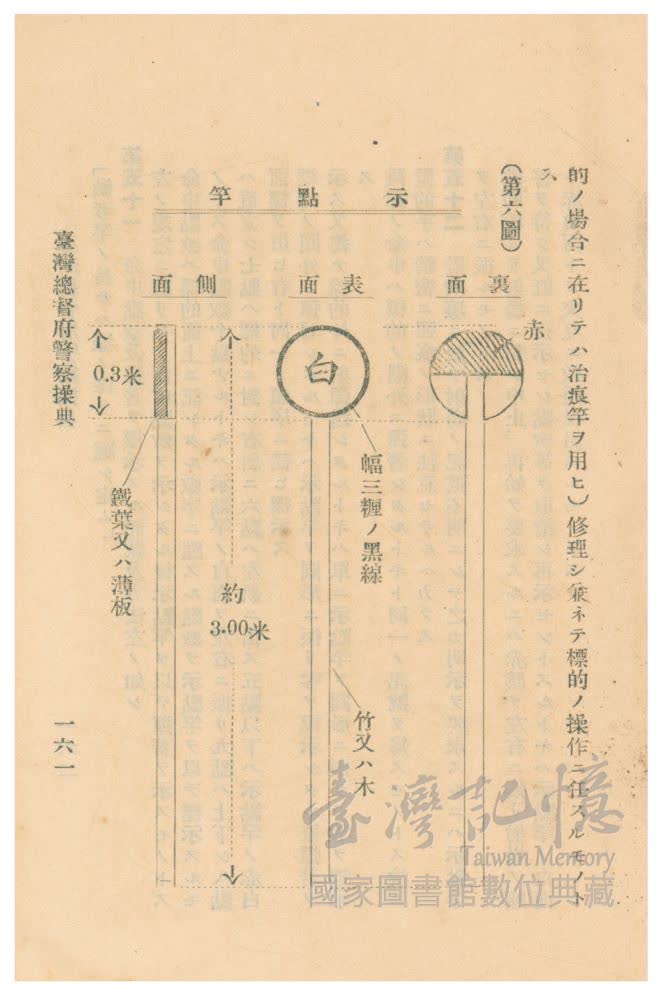 的ノ場合ニ在リテハ治痕竿ヲ用ヒ)修理シ兼ネテ標的ノ操作ニ任スルモノト
ス
(第六圖)
示點竿
裏面
赤
表面
白
幅三糎ノ黑線
竹又ハ木
側面
約
3.00米
0.3米
鐵葉又ハ薄板
臺灣總督府警察操典
一六一
臺灣記憶
Taiwan Memory
國家圖書館數位典藏